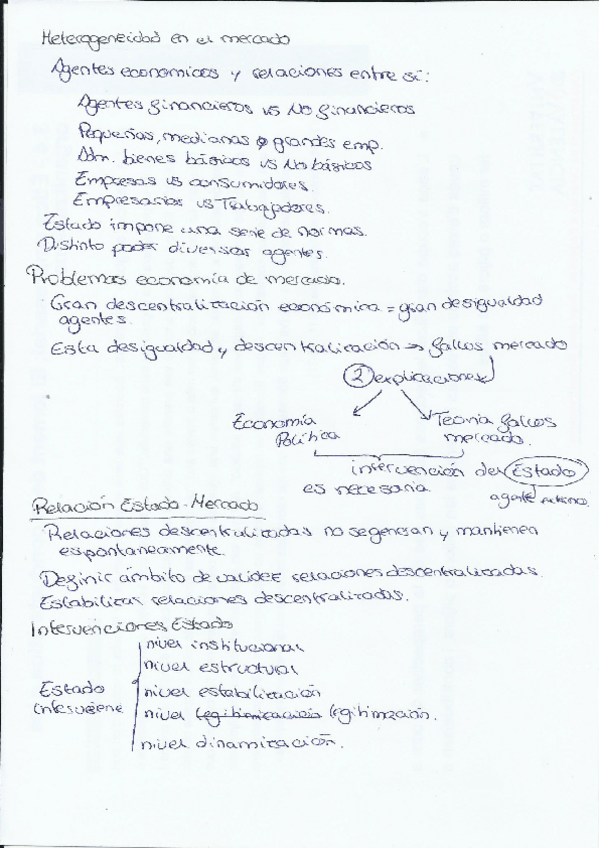 Heterogeneidad en el mercado
Agentes economicos y relaciones entre sí:
Agentes financieros vs No financieros
Pequeñas, medianas o grandes emp.
Adm. bienes básicos vs No básicos
Empresas vs consumidores.
Empresarios vs Trabajadores.
Estado impone una serie de normas.
Distinto poder diversos agentes.
Problemas economía de mercado.
Gran descentralización económica = gran desigualdad
agentes.
Esta desigualdad y descentralización → fallos mercado
2 explicaciones
Economía
Política
Teoría fallos
mercado.
intervención del Estado
es necesaria
agente externo.
Relación Estado-Mercado
Relaciones descentralizadas no se generan y mantienen
espontaneamente.
Definir ámbito de validez relaciones descentralizadas.
Estabilizar relaciones descentralizadas.
Intervenciones Estado
Estado
interviene
nivel institucional
nivel estructural
nivel estabilización
nivel legitimización.
nivel dinamización.